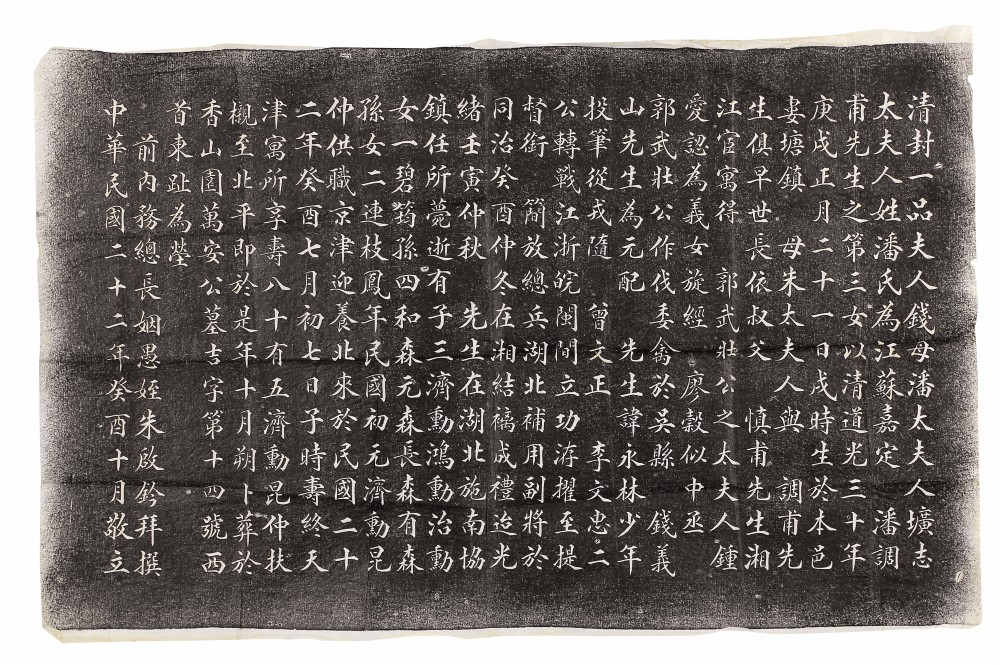 清封一品夫人錢母潘太夫人壙志
太夫人姓潘氏為江蘇嘉定 潘調
甫先生之第三女以清道光三十年
庚戌正月二十一日戌時生於本邑
婁塘鎮 母朱太夫人與 調甫先
生俱早世長依叔父 慎甫先生湘
江宦寓得 郭武壯公之太夫人鍾
愛認為義女旋經 廖穀似中丞
郭武壯公作伐委禽於吳縣 錢義
山先生為元配 先生諱永林少年
投筆從戎隨 曾文正 李文忠二
公轉戰江浙皖閩間立功洊擢至提
督銜 簡放總兵湖北補用副將於
同治癸酉仲冬在湘結褵成禮迨光
緒壬寅仲秋 先生在湖北施南協
鎮任所薨逝有子三濟勳鴻勳治勳
女一碧筠孫四和森元森長森有森
孫女二連枝鳳年民國初元濟勳昆
仲供職京津迎養北來於民國二十
二年癸酉七月初七日子時壽終天
津寓所享壽八十有五濟勳昆仲扶
櫬至北平即於是年十月朔卜葬於
香山園萬安公墓吉字第十四號西
首東趾為塋
前內務總長姻愚姪朱啟鈐拜撰
中華民國二十二年癸酉十月敬立